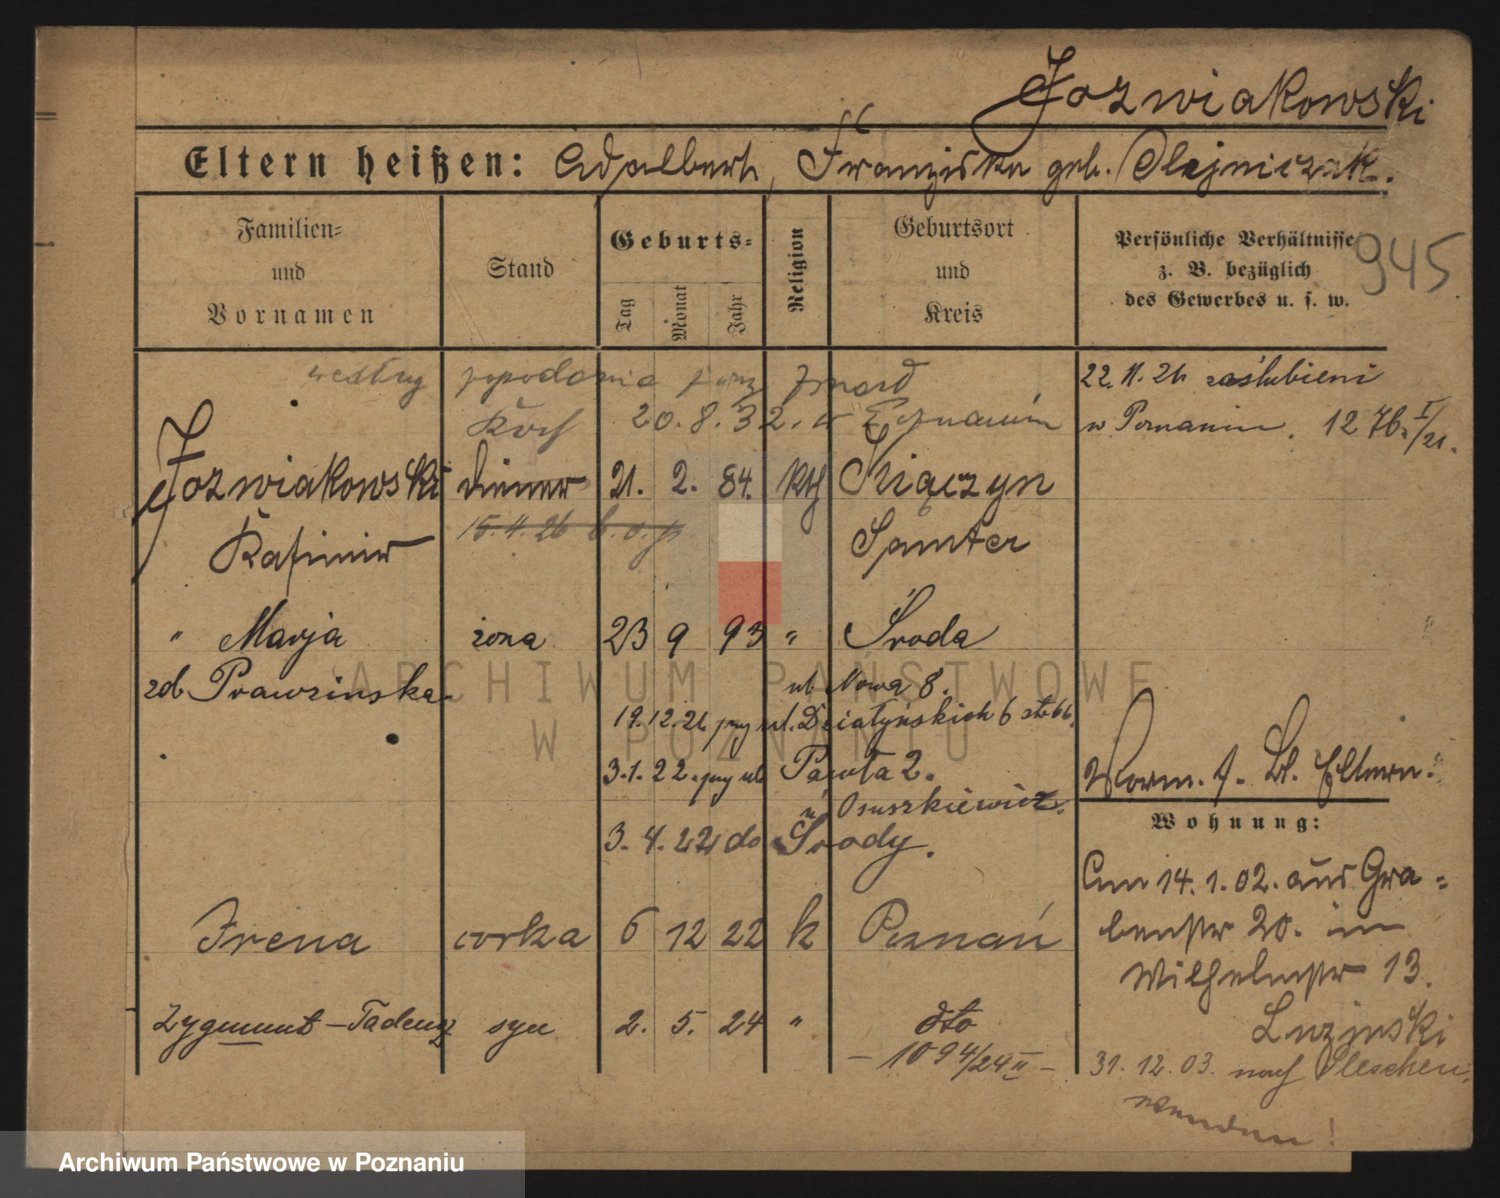 Jozwiakowski
Eltern heißen: Adalbert, Franziska geb. Olejniczak.
Familien-
und
Vornamen
Stand
Geburts-
Tag
Monat
Jahr
Religion
Geburtsort
und
Kreis
Persönliche Verhältnisse
z. B. bezüglich
des Gewerbes u. s. w.
945
według podania zmarł
20.8.32. w Poznaniu
22.11.21 zaślubieni
w Poznaniu. 1276 I/21.
Jozwiakowski Diener 21. 2. 84. kth Kiączyn
Kasimir
15.4.26
Samter
" Marja żona 23 9 93 " Środa
zd. Prawzinska
ul Nowa 8.
19.12.21 przy ul. Działyńskich 6
3.1.22. przy ul Pawła 2.
u Osuszkiewicz.
3.4.22 do Środy.
Vorm. f. Bl. Eltern.
Wohnung:
Am 14.1.02. aus Gra-
benstr 20. in
Wilhelmstr 13.
Luzinski
31.12.03. nach Pleschen
wenden!
Irena corka 6 12 22 k Poznań
Zygmunt-Tadeusz syn 2. 5. 24 " dto
- 1094/24 II -
ARCHIWUM PAŃSTWOWE
W POZNANIU
Archiwum Państwowe w Poznaniu